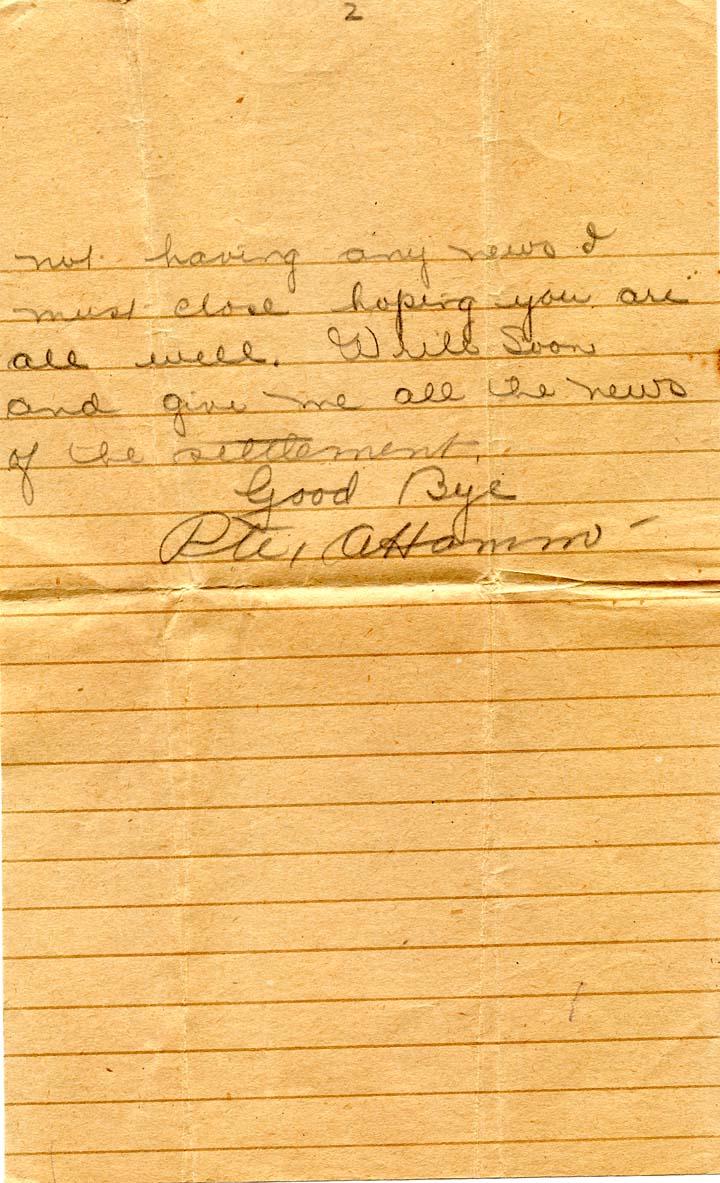 2
not having any news I
must close hoping you are
all well. Write Soon
and give me all the news
of the settlement.
Good Bye
Pte, A Hamm